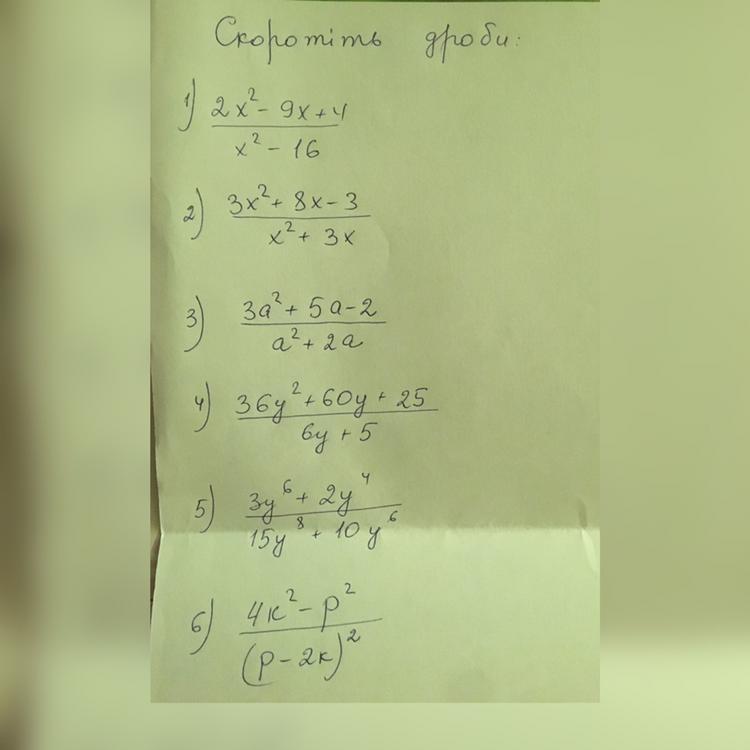 Скоротіть дроби:
1) (2x² - 9x + 4)/(x² - 16)
2) (3x² + 8x - 3)/(x² + 3x)
3) (3a² + 5a - 2)/(a² + 2a)
4) (36y² + 60y + 25)/(6y + 5)
5) (3y⁶ + 2y⁴)/(15y⁸ + 10y⁶)
6) (4к² - p²)/(p - 2к)²